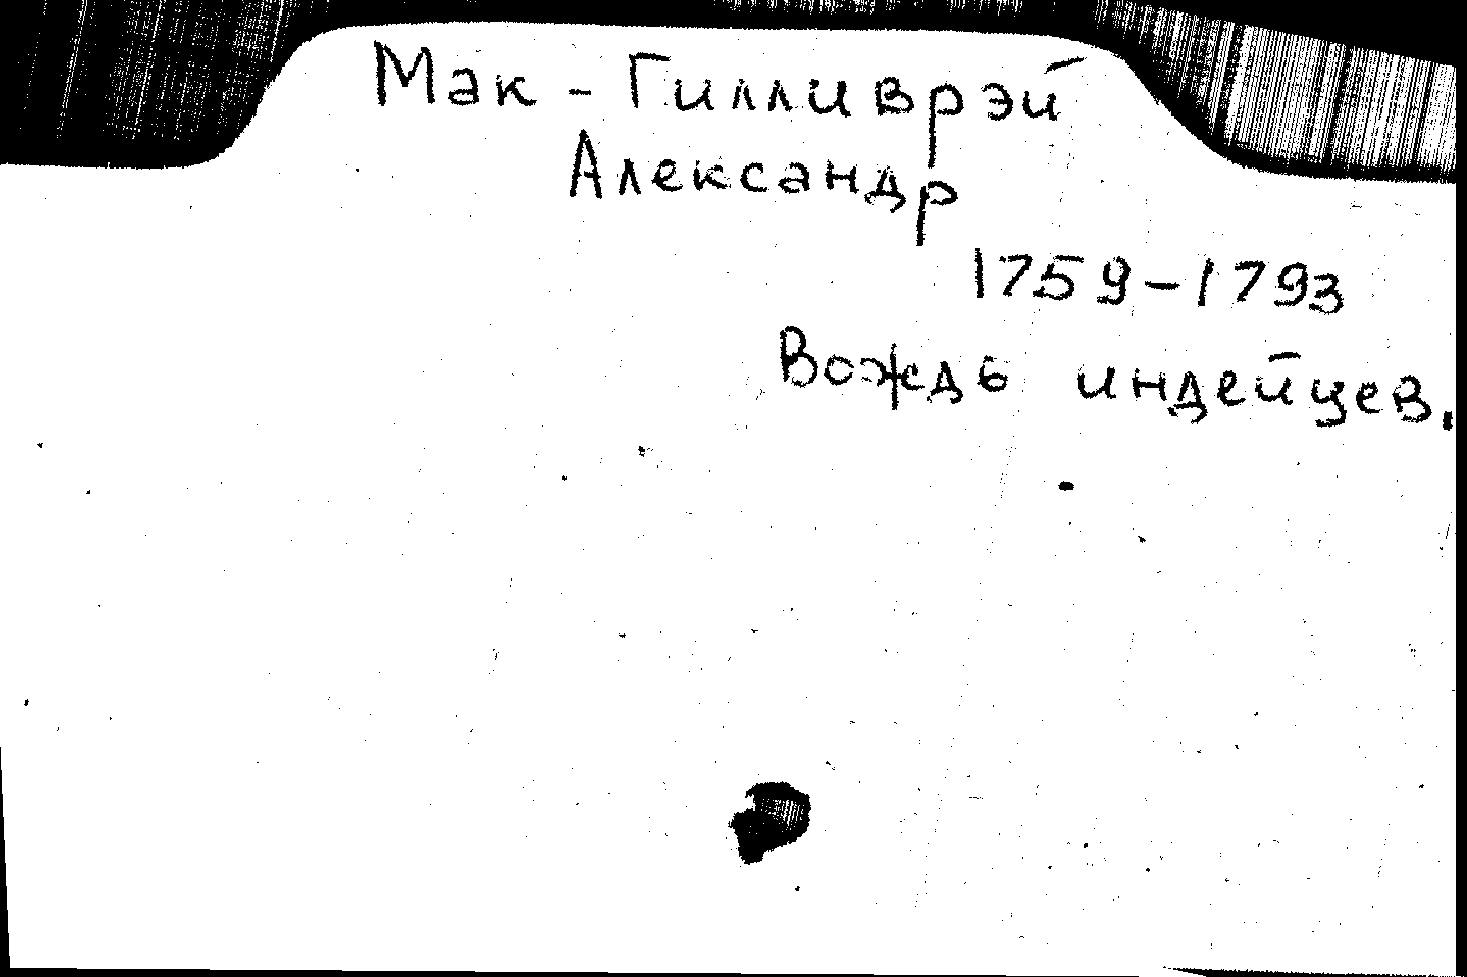 Мак - Гилливрэй
Александр
1759-1793
Вождь индейцев.